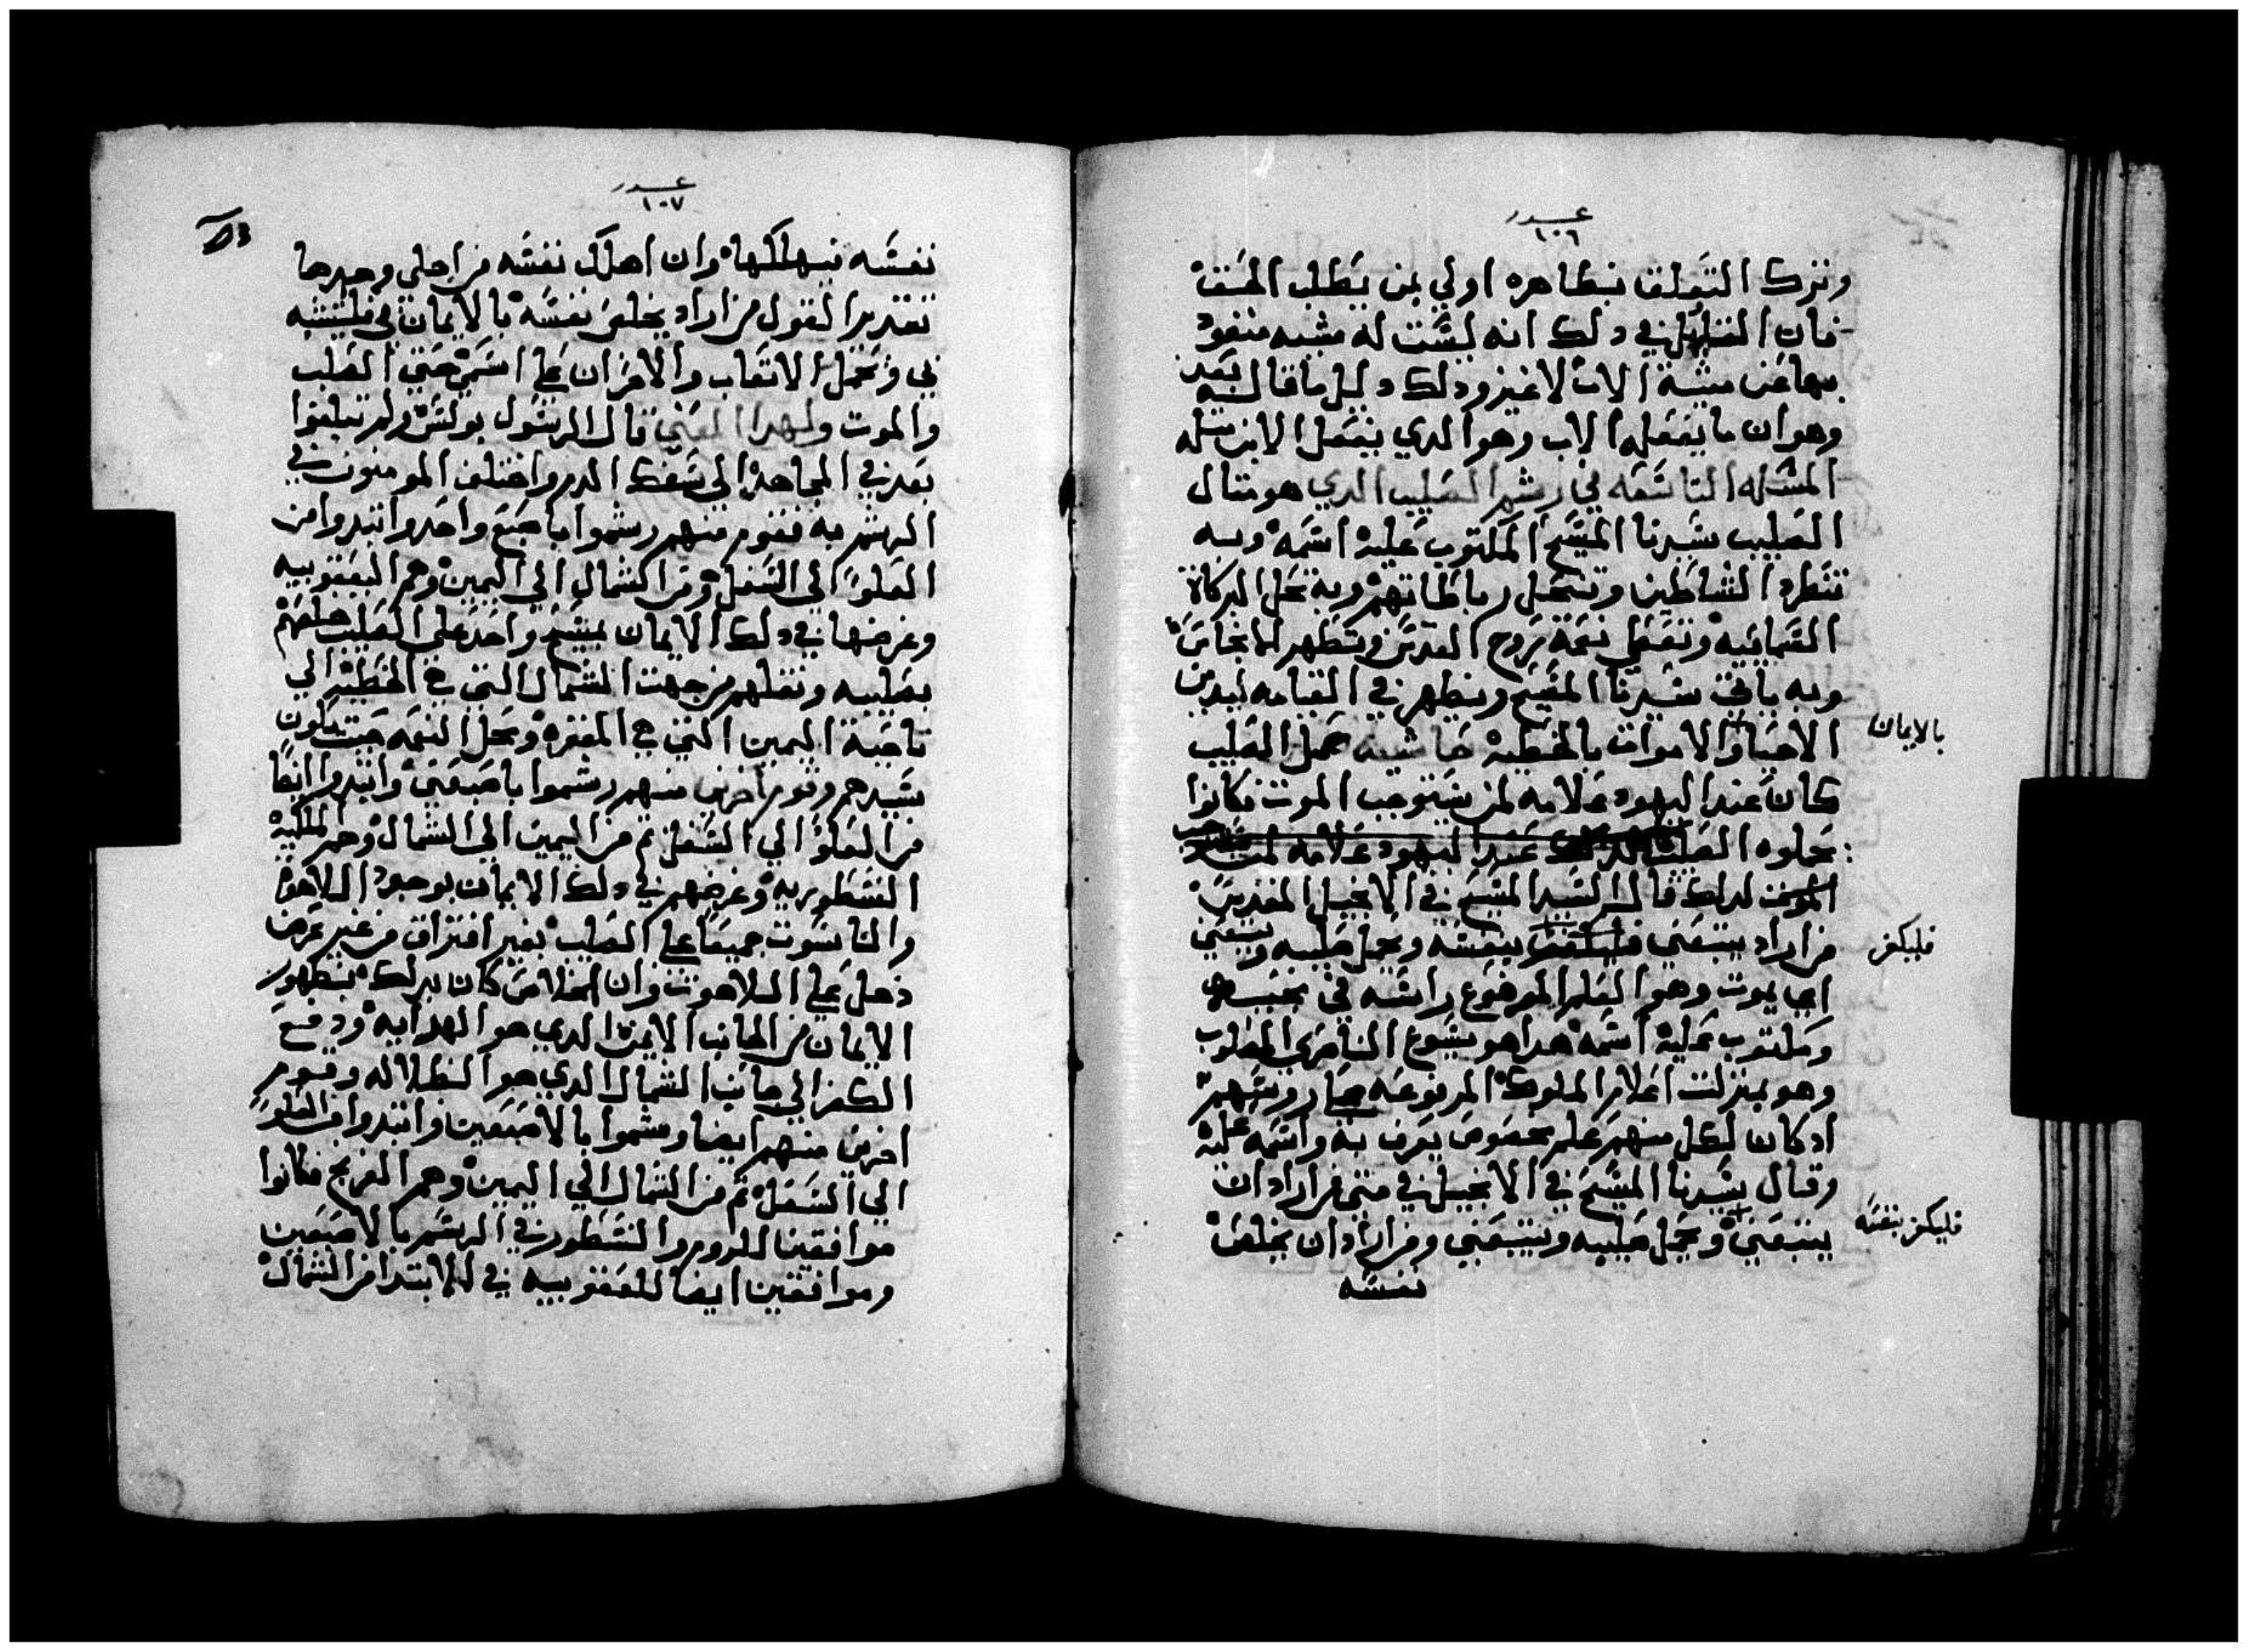 عدد
١٠٦
وترك التعلق بظاهره اولي بمن يطلب الحق
فان القليل في دلك انه ليست له مشيه منفرد
بها عن مشية الاب لا غير ودلك دليل ما قال بعد
وهو ان ما يفعله الاب وهو الدي يفعل الابن مثله
المسله التاسعه في رشم الصليب الدي هو مثال
الصليب سيدنا المسيح المكتوب عليه اسمه وبه
تنطرد الشاطين وتبطل رباطاتهم وبه تحل البركاة
السمايه وتفعل نعمة روح القدس وتطهر الانجاس
وبه ياتي سيدنا المسيح ويظهر في القيامه ليدين
الاحيا والاموات بالخطيه حاشيه حمل الصليب
بالايمان
كان عند اليهود علامه لمن يستوجب الموت فكانوا
يحملوه الصليب لدلك عند اليهود علامه لمن
الموت لدلك قال السيد المسيح في الانجيل المقدس
من اراد يتبعني بنفسه ويحمل صليبه ويتبعني
فليكفر
اي يموت وهو العلم الموضوع راسه في
ومكتوب عليه اسمه هدا هو يسوع الناصري المصلوب
وهو بمنزلت اعلام الملوك المرفوعه روسهم
ادكان لكل منهم علم مخصوص يعرف به واسمه عليه
وقال سيدنا المسيح في الانجيل في متي من اراد ان
يتبعني ويحمل صليبه ويتبعني ومن اراد ان يخلص
فليكفر بنفسه
نفسه
عدد
١٠٧
نفسه فيهلكها وان اهلك نفسه من اجلي وجدها
تقدير القول من اراد يخلص نفسه بالايمان بي فليتشبه
بي وتحمل الاتعاب والاحزان علي اسمي حتي الصلب
والموت ولهدا المعني قال الرسول بولس ولم تبلغوا
بعد في المجاهدة الي سفك الدم واختلف المومنون في
الرشم به فقوم منهم رشموا باصبع واحد وابتدوا من
العلو الي السفل ومن الشمال الي اليمين وهم اليعقوبيه
وغرضها في دلك الايمان بمسيح واحد علي الصليب خلصهم
بصليبه ونقلهم من جهت الشمال التي هي الخطيه الي
ناحية اليمين التي هي المغفره ومحل النعمه حيث يكون
سيدهم وقوم اخرين منهم رشموا باصبعين وابتدوا ايضا
من العلو الي السفل تم من اليمين الي الشمال وهم الملكيه
النسطوريه وغرضهم في دلك الايمان بوجود اللاهوت
والناسوت جميعا علي الصليب بغير افتراق من غير عرض
دخل علي اللاهوت وان الخلاص كان بدلك بظهور
الايمان من الجانب الايمن الدي هو الهدايه ودفع
الكفر الي جانب الشمال الدي هو الظلاله وقوم
اخرين منهم ايضا رشموا بالاصبعين وابتدوا من العلو
الي السفل تم من الشمال الي اليمين وهم الفرنج فكانوا
موافقين للروم والنسطور في الرشم بالاصبعين
وموافقين ايضا لليعقوبيه في الابتدا من الشمال